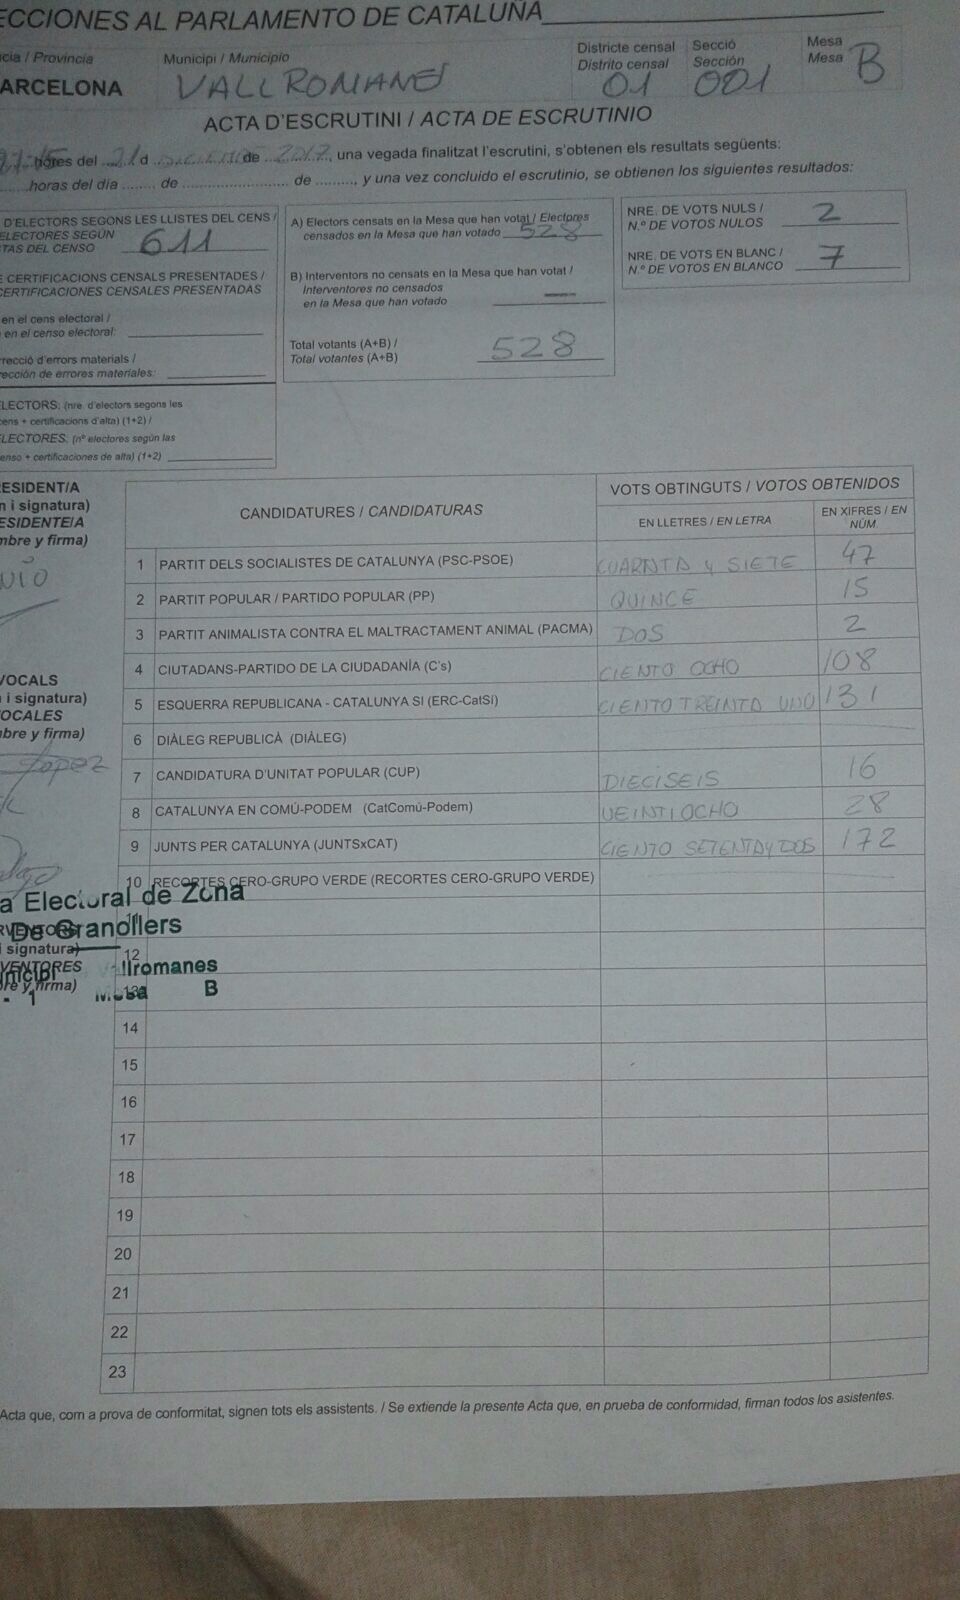 ECCIONES AL PARLAMENTO DE CATALUÑA
cia / Provincia
ARCELONA
Municipi / Municipio
VALLROMANES
Districte censal
Distrito censal
01
Secció
Sección
001
Mesa
Mesa
B
ACTA D'ESCRUTINI / ACTA DE ESCRUTINIO
hores del 21 d de 2017, una vegada finalitzat l'escrutini, s'obtenen els resultats següents:
horas del día ........ de ........................ de ........., y una vez concluido el escrutinio, se obtienen los siguientes resultados:
D'ELECTORS SEGONS LES LLISTES DEL CENS /
ELECTORES SEGÚN
TAS DEL CENSO 611
E CERTIFICACIONS CENSALS PRESENTADES /
CERTIFICACIONES CENSALES PRESENTADAS
en el cens electoral /
en el censo electoral:
rrecció d'errors materials /
rección de errores materiales:
LECTORS: (nre. d'electors segons les
cens + certificacions d'alta) (1+2) /
LECTORES: (nº electores según las
enso + certificaciones de alta) (1+2)
A) Electors censats en la Mesa que han votat / Electores
censados en la Mesa que han votado 528
B) Interventors no censats en la Mesa que han votat /
Interventores no censados
en la Mesa que han votado —
Total votants (A+B) /
Total votantes (A+B) 528
NRE. DE VOTS NULS /
N.º DE VOTOS NULOS 2
NRE. DE VOTS EN BLANC /
N.º DE VOTOS EN BLANCO 7
RESIDENT/A
n i signatura)
ESIDENTE/A
mbre y firma)
VOCALS
i signatura)
OCALES
bre y firma)
Lopez
CANDIDATURES / CANDIDATURAS
VOTS OBTINGUTS / VOTOS OBTENIDOS
EN LLETRES / EN LETRA
EN XIFRES / EN NÚM.
1 PARTIT DELS SOCIALISTES DE CATALUNYA (PSC-PSOE) CUARNTA y SIETE 47
2 PARTIT POPULAR / PARTIDO POPULAR (PP) QUINCE 15
3 PARTIT ANIMALISTA CONTRA EL MALTRACTAMENT ANIMAL (PACMA) DOS 2
4 CIUTADANS-PARTIDO DE LA CIUDADANÍA (C's) CIENTO OCHO 108
5 ESQUERRA REPUBLICANA - CATALUNYA SI (ERC-CatSí) CIENTO TREINTA UNO 131
6 DIÀLEG REPUBLICÀ (DIÀLEG)
7 CANDIDATURA D'UNITAT POPULAR (CUP) DIECISEIS 16
8 CATALUNYA EN COMÚ-PODEM (CatComú-Podem) VEINTIOCHO 28
9 JUNTS PER CATALUNYA (JUNTSxCAT) CIENTO SETENTA y DOS 172
10 RECORTES CERO-GRUPO VERDE (RECORTES CERO-GRUPO VERDE)
a Electoral de Zona
De Granollers
i signatura)
VENTORES
bre y firma)
Vallromanes
- 1 Mesa B
11
12
13
14
15
16
17
18
19
20
21
22
23
Acta que, com a prova de conformitat, signen tots els assistents. / Se extiende la presente Acta que, en prueba de conformidad, firman todos los asistentes.